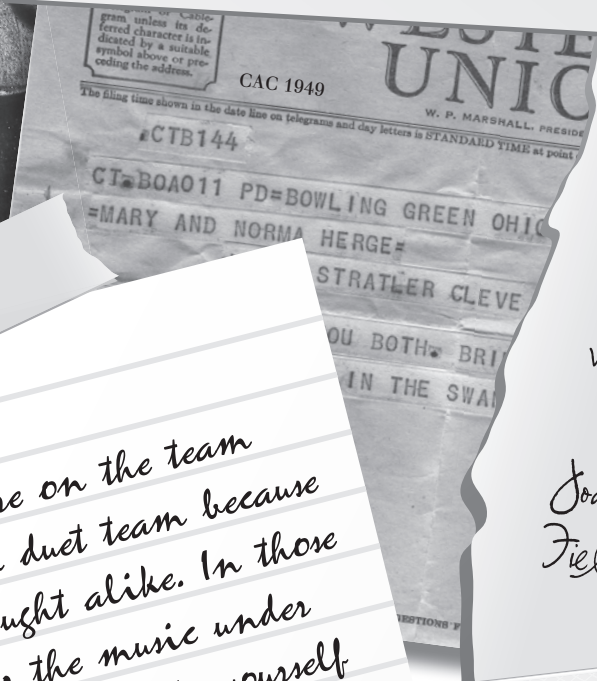 gram unless its de-
ferred character is in-
dicated by a suitable
symbol above or pre-
ceding the address.
CAC 1949
UNIO
W. P. MARSHALL, PRESIDE
The filing time shown in the date line on telegrams and day letters is STANDARD TIME at point
CTB144
CT=BOA011 PD=BOWLING GREEN OHIO
=MARY AND NORMA HERGE=
STRATLER CLEVE
OU BOTH. BRI
IN THE SWA
GESTIONS F
re on the team
duet team because
ught alike. In those
the music under
ourself
Joa
Fiel